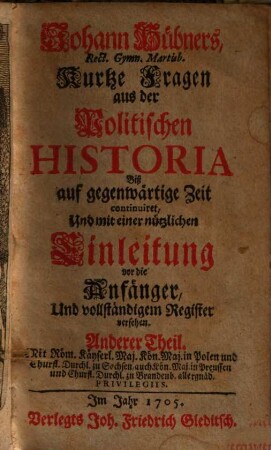 Johann Hübners,
Rect. Gymn. Martisb.
Kurtze Fragen
aus der
Politischen
HISTORIA
Biß
auf gegenwärtige Zeit
continuiret,
Und mit einer nützlichen
Einleitung
vor die
Anfänger,
Und vollständigem Register
versehen.
Anderer Theil.
Mit Röm. Käyserl. Maj. Kön. Maj. in Polen und
Churfl. Durchl. zu Sachsen, auch Kön. Maj. in Preussen
und Churfl. Durchl. zu Brandenb. allergnäd.
PRIVILEGIIS.
Im Jahr 1705.
Verlegts Joh. Friedrich Gleditsch.